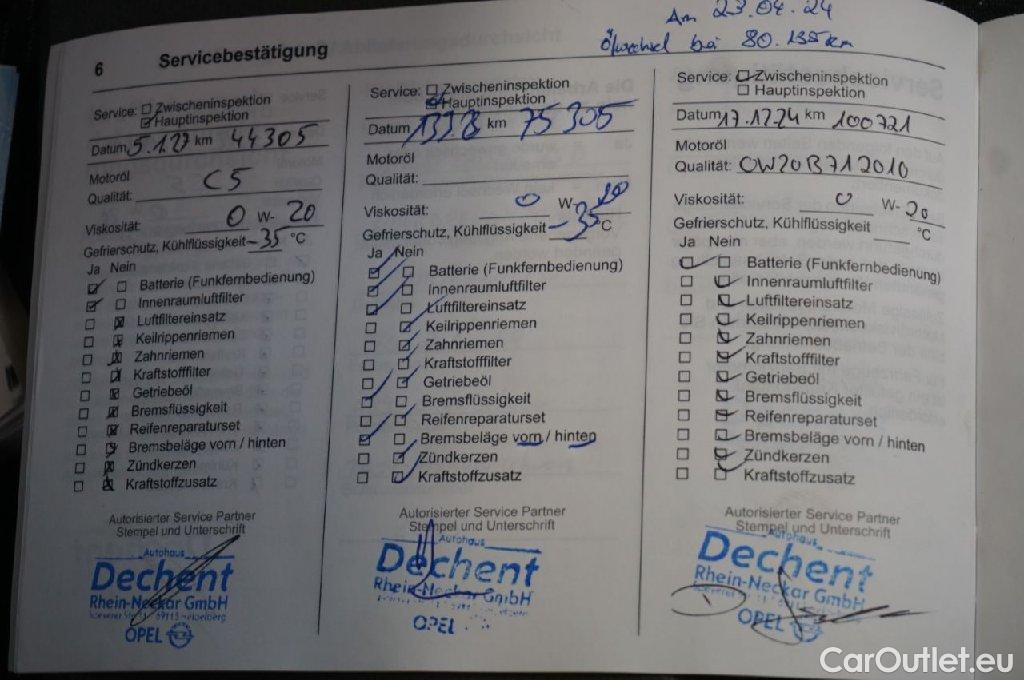 Am 23.04.24
Ölwechsel bei 80.135 km
6 Servicebestätigung
Service: Zwischeninspektion
Hauptinspektion
Datum 5.1.22 km 44305
Motoröl
Qualität: C5
Viskosität: 0 W- 20
Gefrierschutz, Kühlflüssigkeit -35 °C
Ja Nein
Batterie (Funkfernbedienung)
Innenraumluftfilter
Luftfiltereinsatz
Keilrippenriemen
Zahnriemen
Kraftstofffilter
Getriebeöl
Bremsflüssigkeit
Reifenreparaturset
Bremsbeläge vorn / hinten
Zündkerzen
Kraftstoffzusatz
Autorisierter Service Partner
Stempel und Unterschrift
Autohaus
Dechent
Rhein-Neckar GmbH
69115 Heidelberg
OPEL
Service: Zwischeninspektion
Hauptinspektion
Datum km 75305
Motoröl
Qualität:
Viskosität: 0 W- 20
Gefrierschutz, Kühlflüssigkeit -35 °C
Ja Nein
Batterie (Funkfernbedienung)
Innenraumluftfilter
Luftfiltereinsatz
Keilrippenriemen
Zahnriemen
Kraftstofffilter
Getriebeöl
Bremsflüssigkeit
Reifenreparaturset
Bremsbeläge vorn / hinten
Zündkerzen
Kraftstoffzusatz
Autorisierter Service Partner
Stempel und Unterschrift
Autohaus
Dechent
Rhein-Neckar GmbH
OPEL
Service: Zwischeninspektion
Hauptinspektion
Datum 17.12.24 km 100721
Motoröl
Qualität: 0W20B712010
Viskosität: 0 W- 20
Gefrierschutz, Kühlflüssigkeit °C
Ja Nein
Batterie (Funkfernbedienung)
Innenraumluftfilter
Luftfiltereinsatz
Keilrippenriemen
Zahnriemen
Kraftstofffilter
Getriebeöl
Bremsflüssigkeit
Reifenreparaturset
Bremsbeläge vorn / hinten
Zündkerzen
Kraftstoffzusatz
Autorisierter Service Partner
Stempel und Unterschrift
Autohaus
Dechent
Rhein-Neckar GmbH
OPEL
CarOutlet.eu